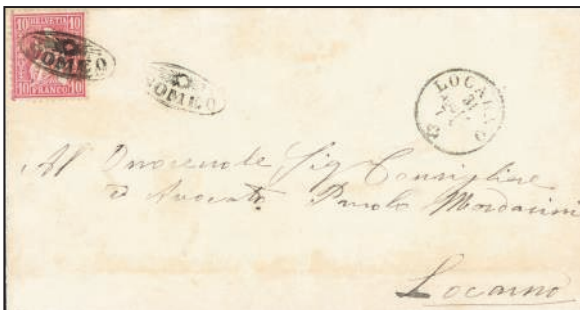 10 HELVETIA 10
10 FRANCO 10
SOMEO
SOMEO
LOCARNO
31
Al Onorevole Sig Consigliere
Avocato Paolo Mordasini
Locarno